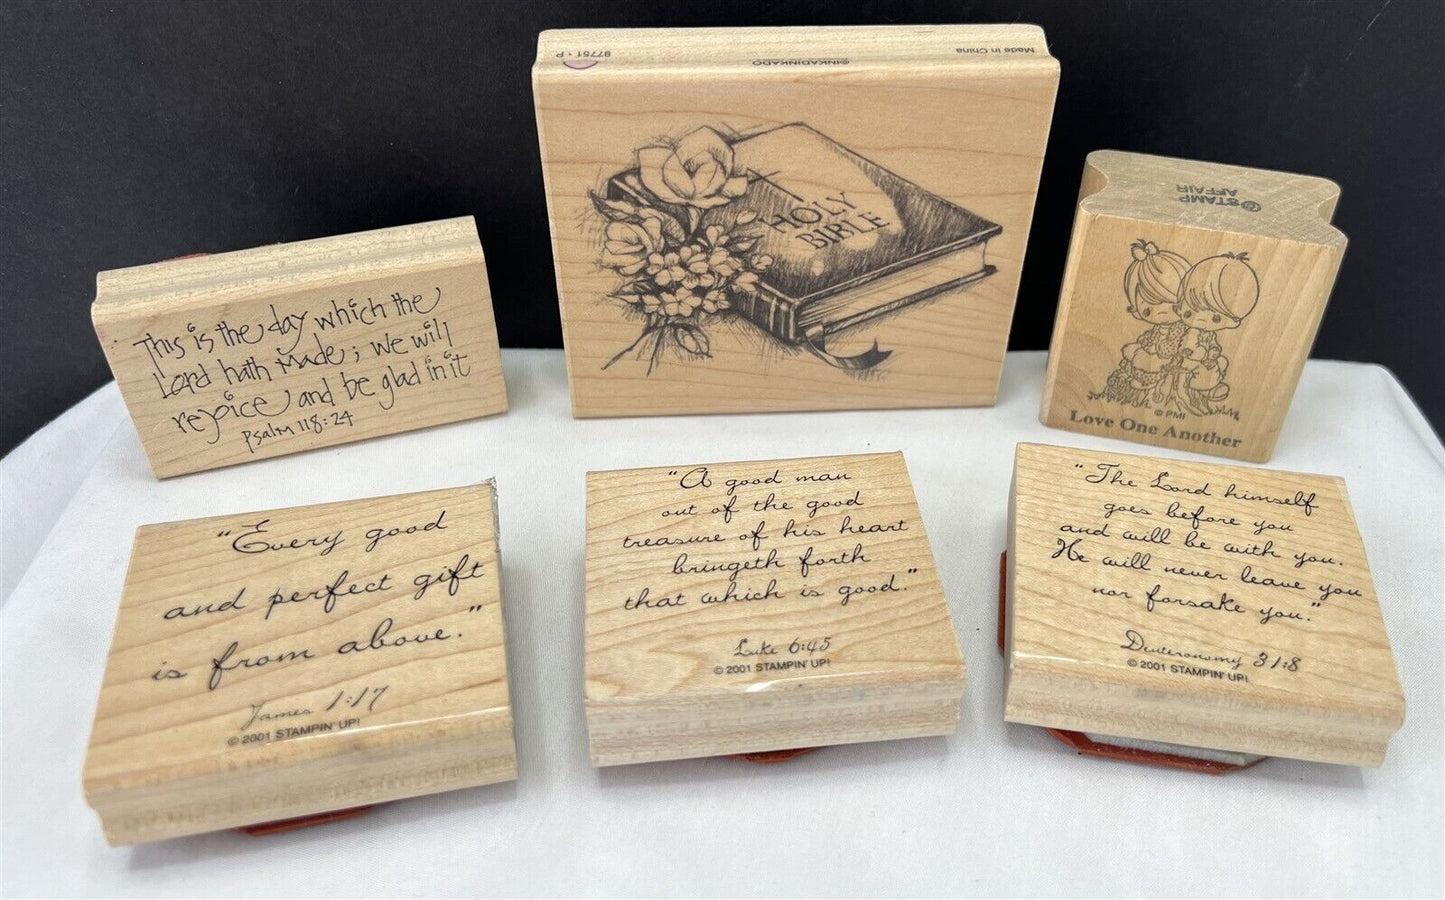 97751 • P
©INKADINKADO
Made in China
HOLY
BIBLE
©STAMP
AFFAIR
©PMI
Love One Another
This is the day which the
Lord hath made; we will
rejoice and be glad in it
Psalm 118:24
"Every good
and perfect gift
is from above."
James 1:17
© 2001 STAMPIN' UP!
"A good man
out of the good
treasure of his heart
bringeth forth
that which is good."
Luke 6:45
© 2001 STAMPIN' UP!
"The Lord himself
goes before you
and will be with you.
He will never leave you
nor forsake you."
Deuteronomy 31:8
© 2001 STAMPIN' UP!